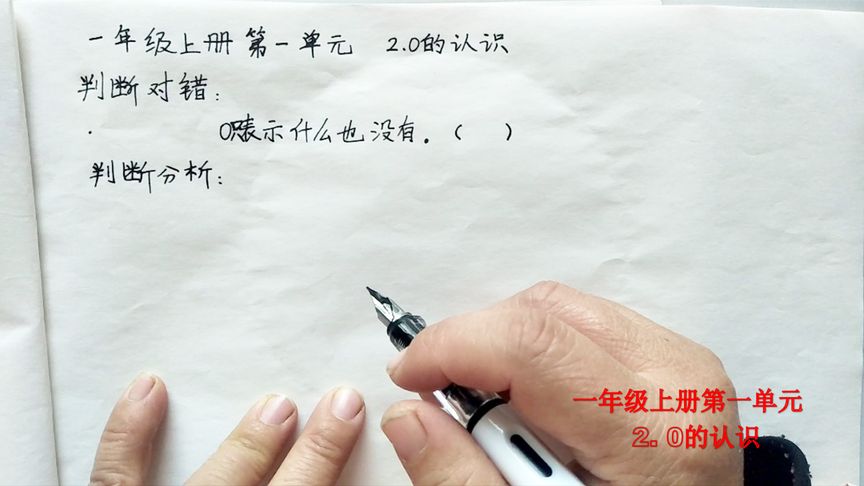 一年级上册第一单元 2.0的认识
判断对错：
· 0只表示什么也没有。（ ）
判断分析：
一年级上册第一单元
2.0的认识